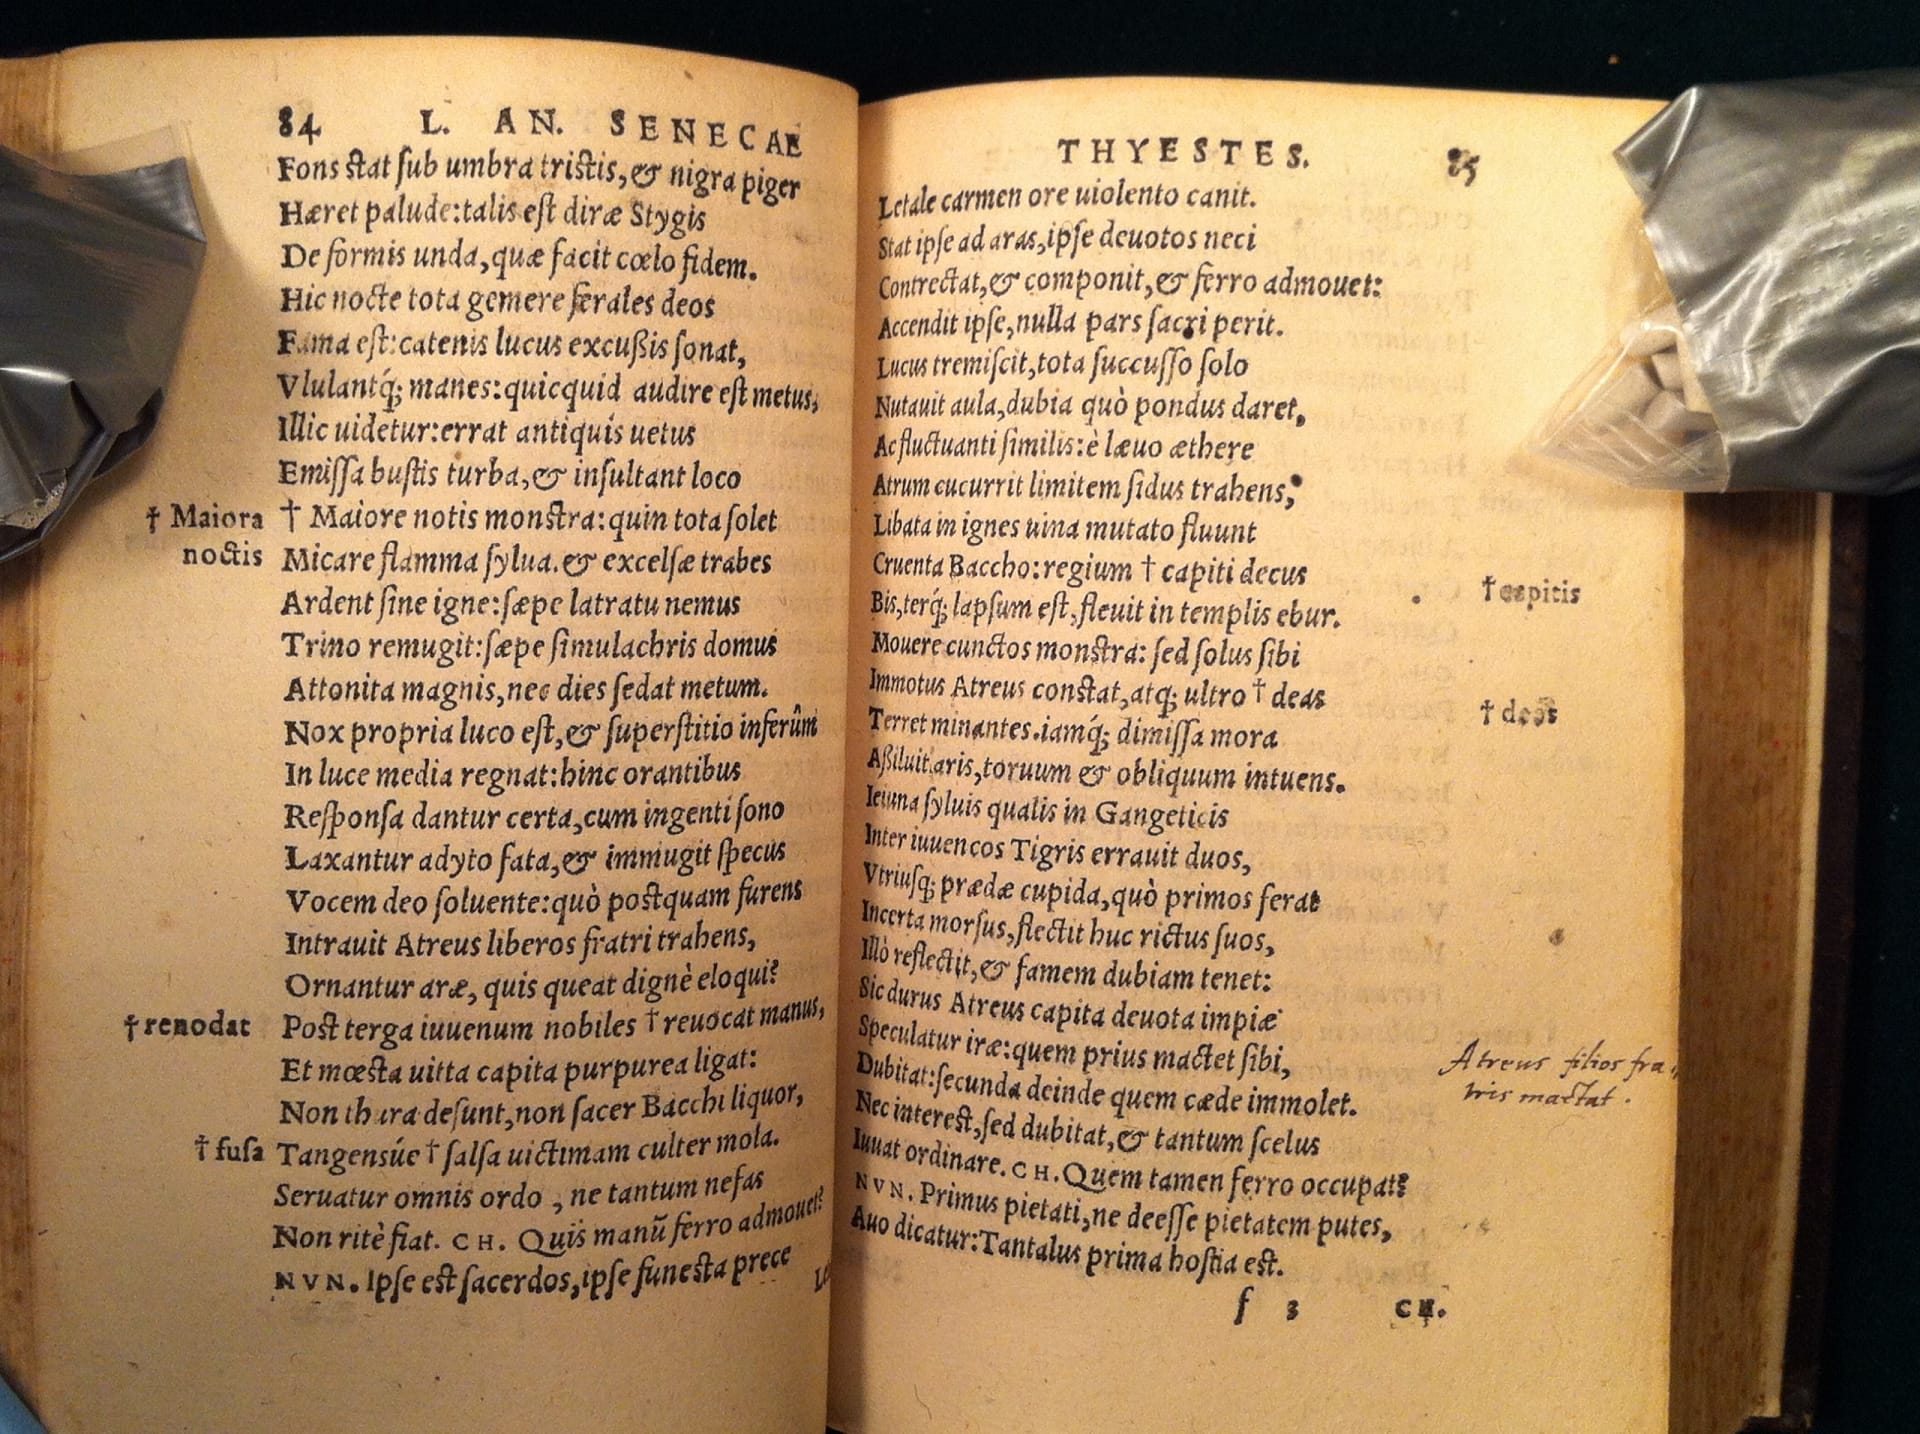 84 L. AN. SENECAE
Fons stat sub umbra tristis, & nigra piger
Hæret palude: talis est diræ Stygis
De formis unda, quæ facit cœlo fidem.
Hic nocte tota gemere ferales deos
Fama est: catenis lucus excußis sonat,
Vlulantq́; manes: quicquid audire est metus,
Illic uidetur: errat antiquis uetus
Emissa bustis turba, & insultant loco
† Maiora † Maiore notis monstra: quin tota solet
noctis Micare flamma sylua. & excelsæ trabes
Ardent sine igne: sæpe latratu nemus
Trino remugit: sæpe simulachris domus
Attonita magnis, nec dies sedat metum.
Nox propria luco est, & superstitio inferûm
In luce media regnat: hinc orantibus
Responsa dantur certa, cum ingenti sono
Laxantur adyto fata, & immugit specus
Vocem deo soluente: quò postquam furens
Intrauit Atreus liberos fratri trahens,
Ornantur aræ, quis queat dignè eloqui?
† renodat Post terga iuuenum nobiles † reuocat manus,
Et mœsta uitta capita purpurea ligat:
Non thura desunt, non sacer Bacchi liquor,
† fusa Tangensúe † salsa uictimam culter mola.
Seruatur omnis ordo , ne tantum nefas
Non ritè fiat. CH. Quis manũ ferro admouet?
NVN. Ipse est sacerdos, ipse funesta prece
Le
THYESTES. 85
Letale carmen ore uiolento canit.
Stat ipse ad aras, ipse deuotos neci
Contrectat, & componit, & ferro admouet:
Accendit ipse, nulla pars sacri perit.
Lucus tremiscit, tota succusso solo
Nutauit aula, dubia quò pondus daret,
Ac fluctuanti similis: è læuo æthere
Atrum cucurrit limitem sidus trahens,
Libata in ignes uina mutato fluunt
Cruenta Baccho: regium † capiti decus † capitis
Bis, terq́; lapsum est, fleuit in templis ebur.
Mouere cunctos monstra: sed solus sibi
Immotus Atreus constat, atq; ultro † deas † deos
Terret minantes. iamq́; dimissa mora
Aßiluit aris, toruum & obliquum intuens.
Ieiuna syluis qualis in Gangeticis
Inter iuuencos Tigris errauit duos,
Vtriusq; prædæ cupida, quò primos ferat
Incerta morsus, flectit huc rictus suos,
Illò reflectit, & famem dubiam tenet:
Sic durus Atreus capita deuota impiæ
Speculatur iræ: quem prius mactet sibi, Atreus filios fra-
Dubitat: secunda deinde quem cæde immolet. tris mactat.
Nec interest, sed dubitat, & tantum scelus
Iuuat ordinare. CH. Quem tamen ferro occupat?
NVN. Primus pietati, ne deesse pietatem putes,
Auo dicatur: Tantalus prima hostia est.
f 3 CH.